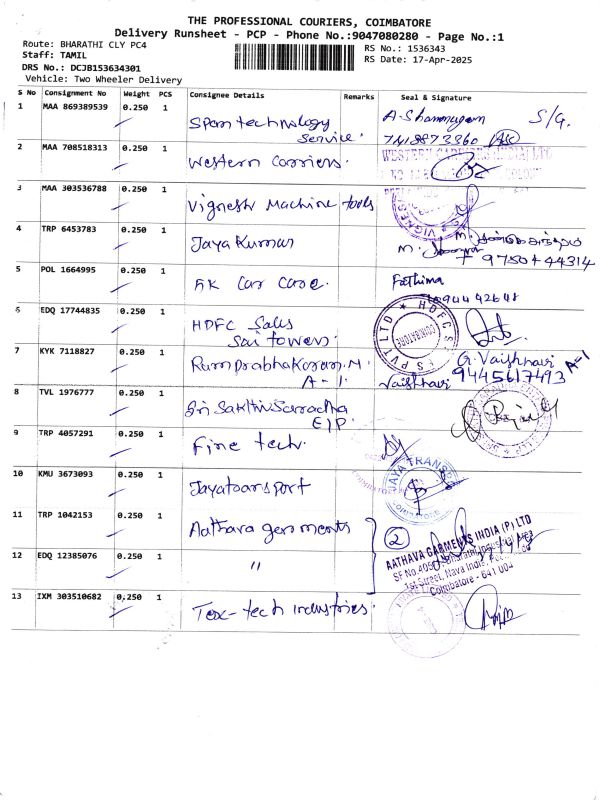 THE PROFESSIONAL COURIERS, COIMBATORE
Delivery Runsheet - PCP - Phone No.:9047080280 - Page No.:1
Route: BHARATHI CLY PC4
RS No.: 1536343
Staff: TAMIL
RS Date: 17-Apr-2025
DRS No.: DCJB153634301
Vehicle: Two Wheeler Delivery
S No Consignment No Weight PCS Consignee Details Remarks Seal & Signature
1 MAA 869389539 0.250 1 Span technology Service. A-Shanmugam S/G.
2 MAA 708518313 0.250 1 Western Carriers. WESTERN CARRIERS INDIA LTD
3 MAA 303536788 0.250 1 Vignesh Machine tools
4 TRP 6453783 0.250 1 Jaya Kumar M. 97504 44314
5 POL 1664995 0.250 1 AK Car Care. Fathima
6 EDQ 17744835 0.250 1 HDFC Sales Sai towers. COIMBATORE
7 KYK 7118827 0.250 1 Ramprabhakaran.M. A-1. Vaishnavi G. Vaishnavi 9445617493 A-1
8 TVL 1976777 0.250 1 Sri Sakthi Saradha E/P.
9 TRP 4057291 0.250 1 Fine tech.
10 KMU 3673093 0.250 1 Jayatransport JAYA TRANS
11 TRP 1042153 0.250 1 Aathava garments 2 AATHAVA GARMENTS INDIA (P) LTD
12 EDQ 12385076 0.250 1 " 1st Street, Nava India, Coimbatore - 641 004
13 IXM 303510682 0.250 1 Tex-tech industries.